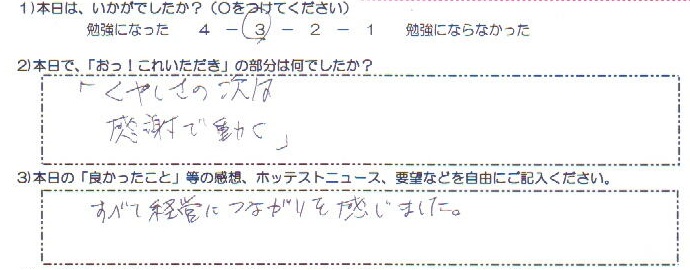 1)本日は、いかがでしたか?(○をつけてください)
勉強になった 4 - 3 - 2 - 1 勉強にならなかった
2)本日で、「おっ!これいただき」の部分は何でしたか?
「くやしさの次は
感謝で動く」
3)本日の「良かったこと」等の感想、ホッテストニュース、要望などを自由にご記入ください。
すべて経営につながりを感じました。